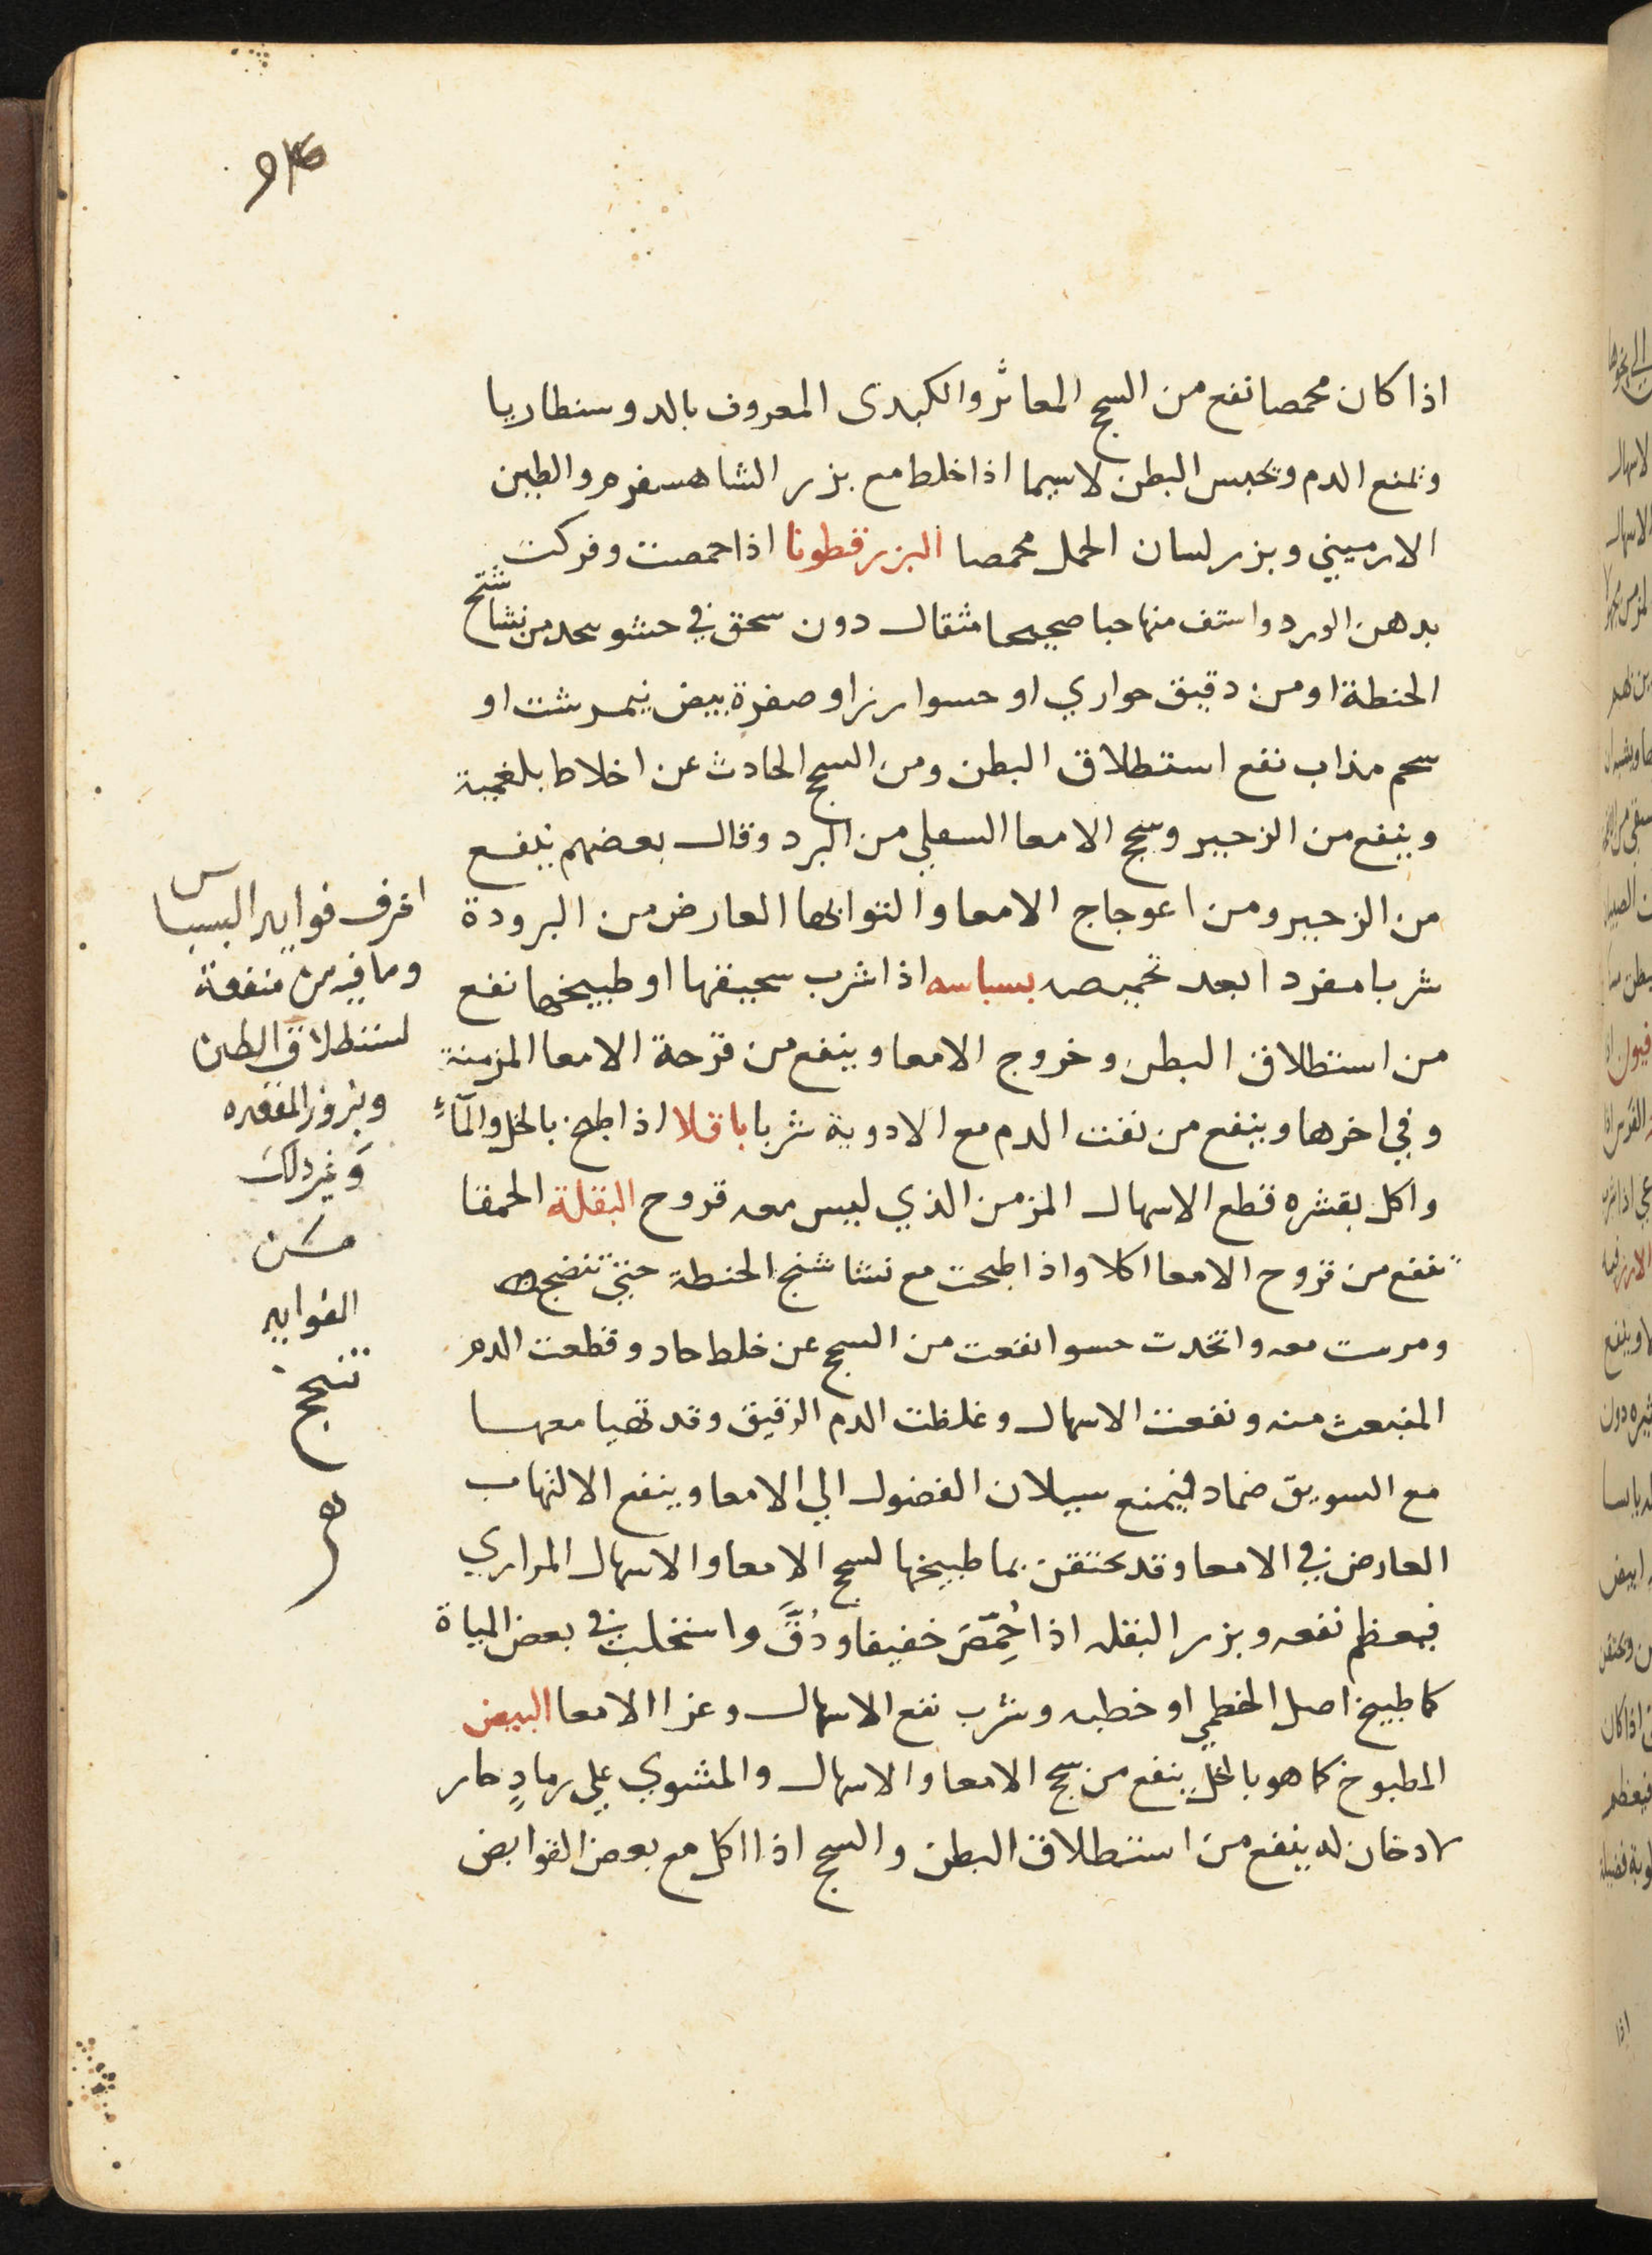 اذا كان محمصا نفع من السحج المعاثر والكبدى المعروف بالدوسنطاريا
وتمنع الدم وتحبس البطن لاسيما اذا خلط مع بزر الشاهسفرم والطين
الارميني وبزر لسان الحمل محمصا البزرقطونا اذا حمصت وفركت
بدهن الورد واستف منها حبا صحيحا مثقال دون سحق في حشو من نشاشتج
الحنطة او من دقيق حواري او حسوا رز او صفرة بيض نيمرشت او
سحم مذاب نفع استطلاق البطن ومن السحج الحادث عن اخلاط بلغمية
وينفع من الزحير وسحج الامعا السفلي من البرد وقال بعضهم ينفع
من الزحير ومن اعوجاج الامعا والتوايها العارض من البرودة
شربا مفردا بعد تحميصه بسباسه اذا شرب سحيقها او طبيخها نفع
من استطلاق البطن وخروج الامعا وينفع من قرحة الامعا المزمنة
وفي اخرها وينفع من نفث الدم مع الادوية شربا باقلا اذا طبخ بالخل والمآء
واكل بقشره قطع الاسهال المزمن الذي ليس معه قروح البقلة الحمقا
تنفع من قروح الامعا اكلا واذا طبخت مع نشا شنج الحنطة حتي تنضج
ومرست معه واتخدت حسوا نفعت من السحج عن خلط حاد وقطعت الدم
المنبعث منه ونفعت الاسهال وغلظت الدم الرقيق وقد تهيا معها
مع السويق ضماد فيمنع سيلان الفضول الي الامعا وينفع الالتهاب
العارض في الامعا وقد يحتقن بما طبيخها لسحج الامعا والاسهال المراري
فيعظم نفعه وبزر البقله اذا حُمّصَ خفيفا ودُقَّ واستحلب في بعض المياة
كما طبيخ اصل الخطمي او خطبه وشرب نفع الاسهال وعزا الامعا البيض
المطبوخ كما هو بالخل ينفع من سحج الامعا والاسهال والمشوي علي رمادٍ حار
لا دخان له ينفع من استطلاق البطن والسحج اذا اكل مع بعض القوابض
اعرف فوايد البسباس
وما فيه من منفعة
لستطلاق البطن
وبروز المقعده
وَغير دلك
مـَن
الفوايد
تنجح